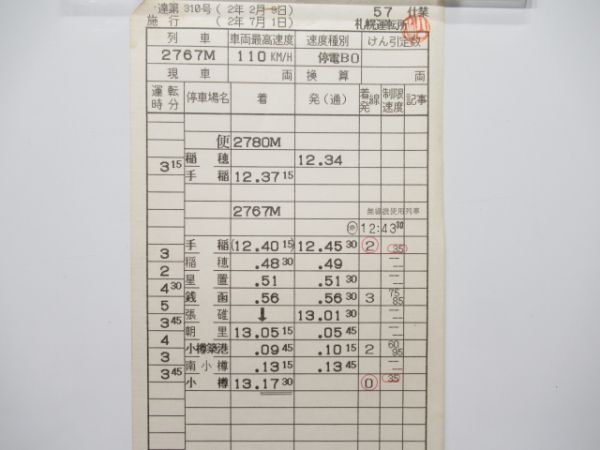 達第 310号 ( 2年 2月 9日) 57 仕業
施 行 ( 2年 7月 1日) 札幌運転所
列 車 車両最高速度 速度種別 けん引定数
2767M 110 KM/H 停電B0
現 車 両 換 算 両
運転時分 停車場名 着 発(通) 着発線 制限速度 記事
便 2780M
稲 穂 12.34
3 15
手 稲 12.37 15
2767M 無線機使用列車
12:43 30
手 稲 (12.40 15) 12.45 30 2 35
3
稲 穂 .48 30 .49 ――
2
星 置 .51 .51 30 ――
4 30
銭 函 .56 .56 30 3 75 85
5
張 碓 ↓ 13.01 30 ――
3 45
朝 里 13.05 15 .05 45 ――
4
小樽築港 .09 45 .10 15 2 60 95
3
南小樽 .13 15 .13 45 ――
3 45
小 樽 13.17 30 0 35